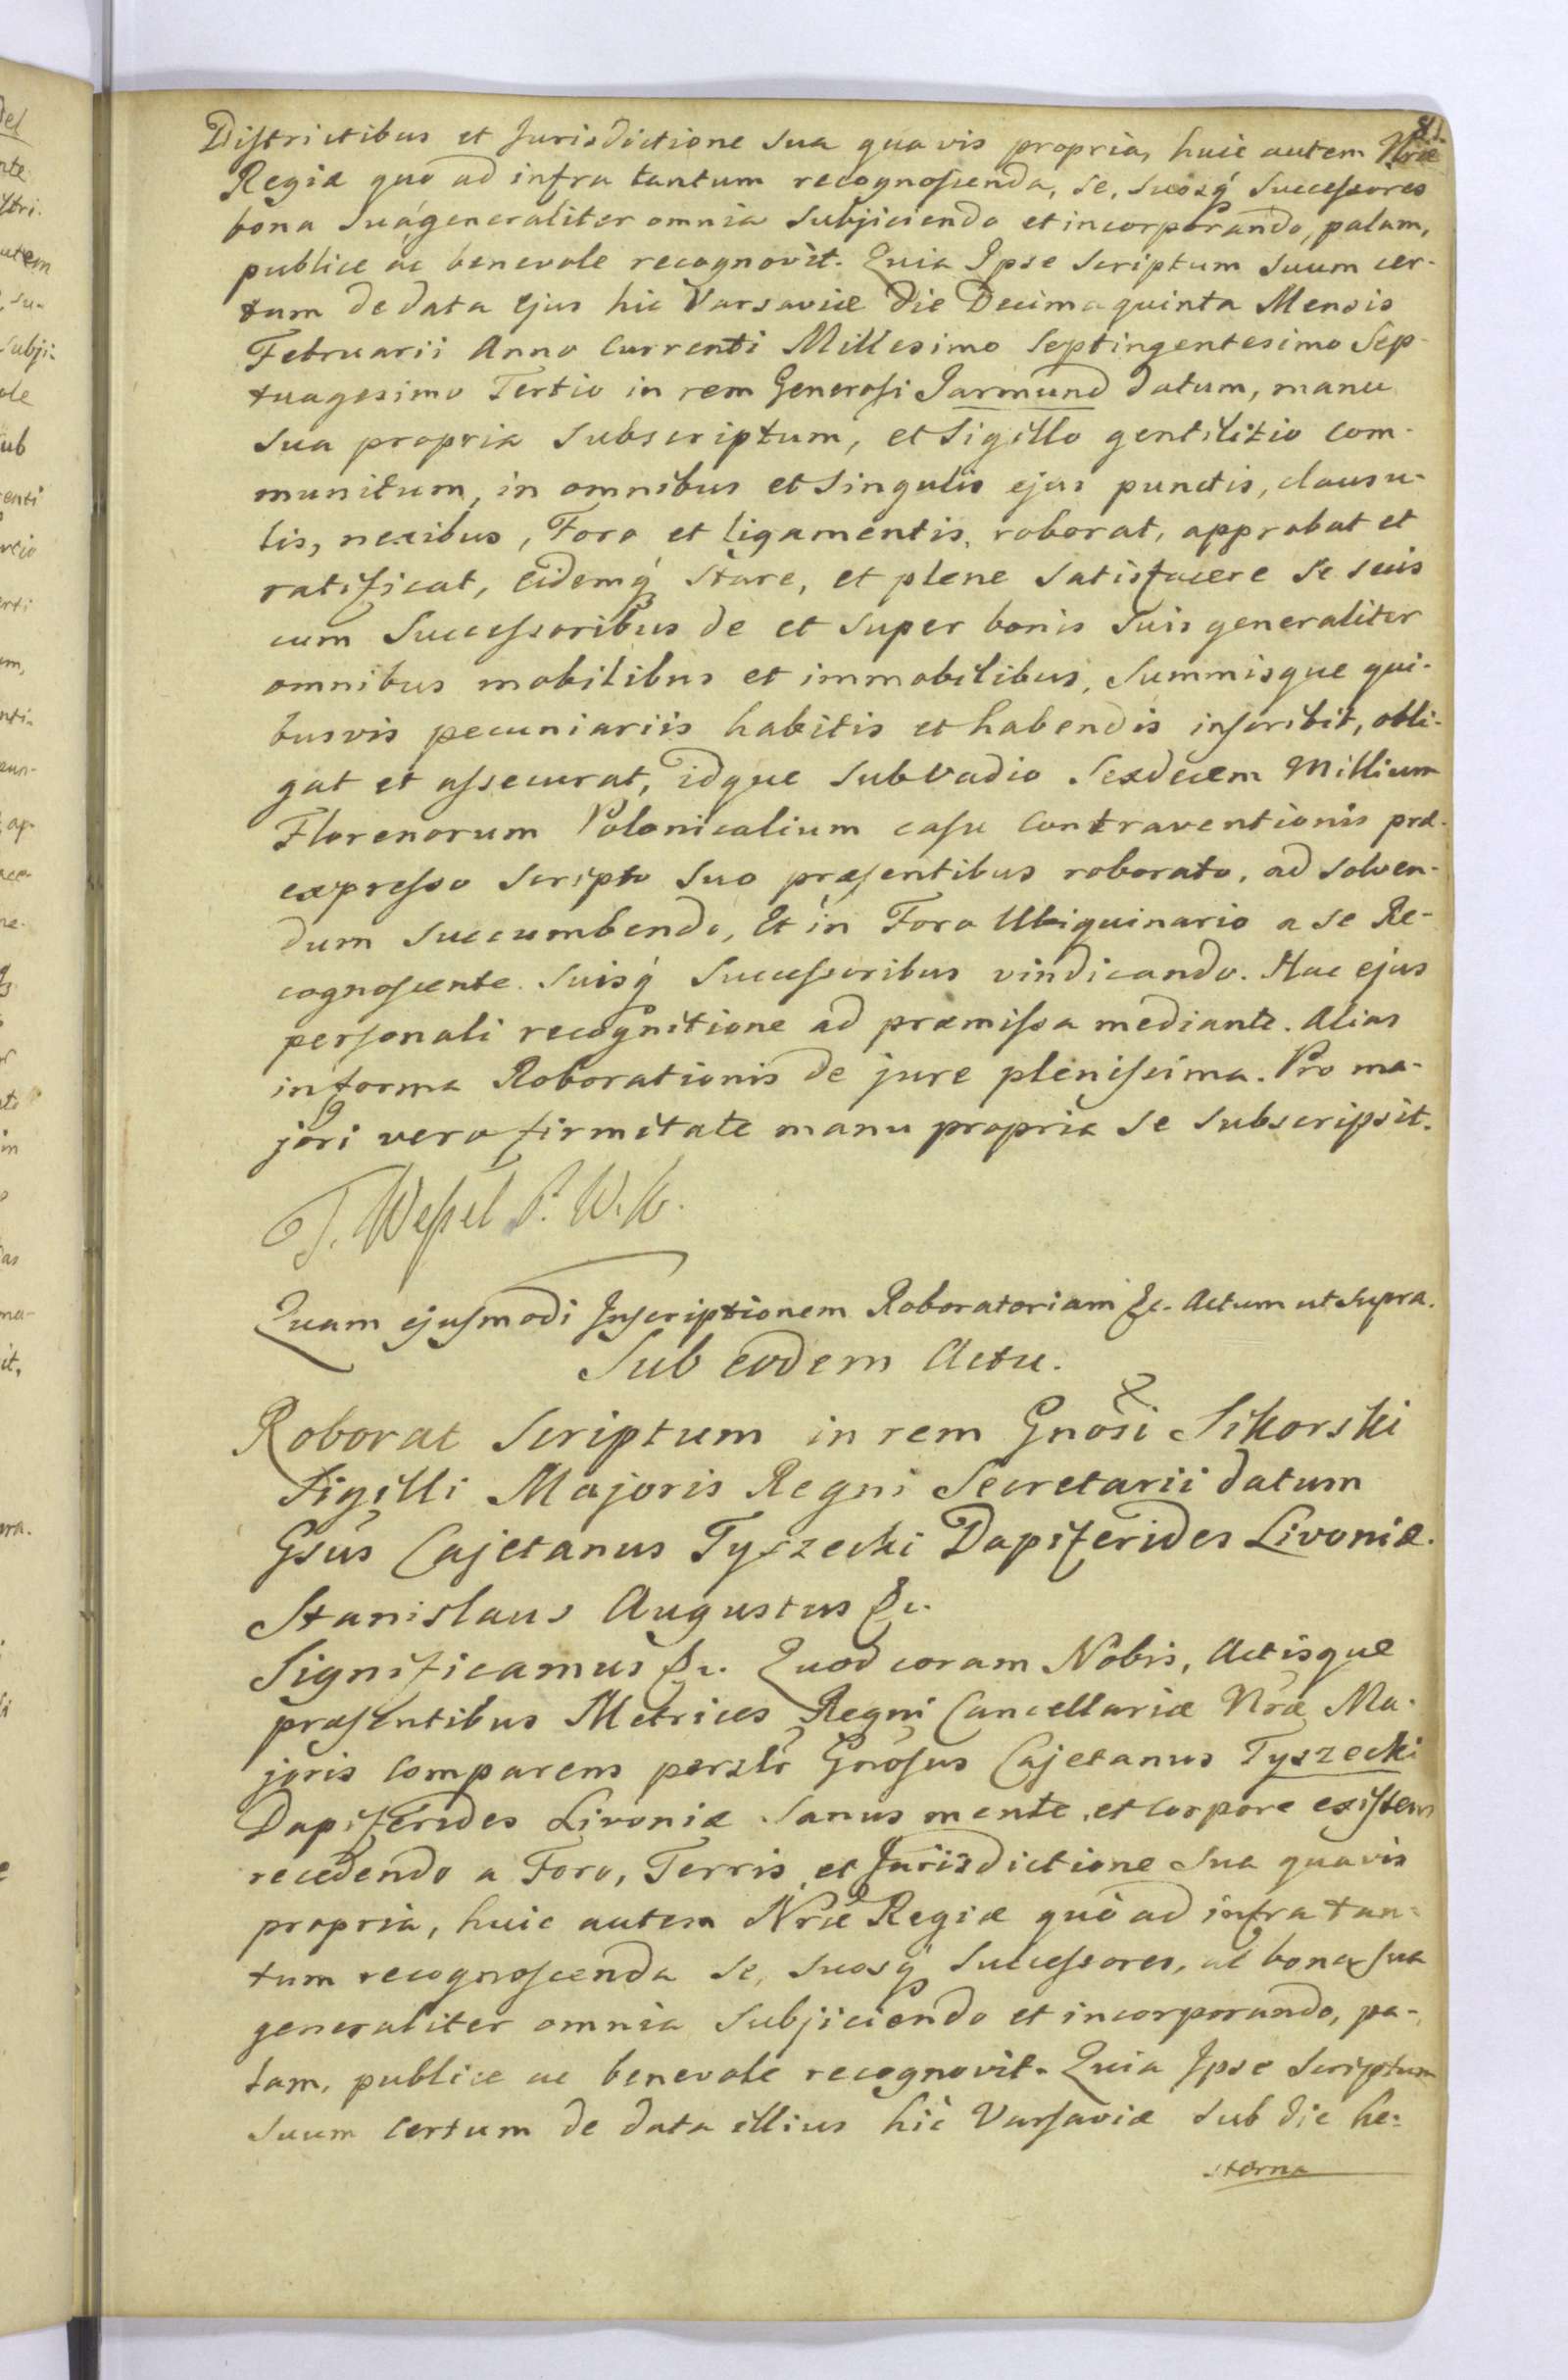 Districtibus et Jurisdictione sua quavis propria, huic autem Nræ
Regiæ quo ad infra tantum recognoscenda, se, suosq́ Successores
bona sua generaliter omnia Subjiciendo et incorporando, palam,
publice ac benevole recognovit. Quia Ipse Scriptum suum cer-
tum de data ejus hic Varsaviæ die Decima quinta Mensis
Februarii Anno Currenti Millesimo Septingentesimo Sep-
tuagesimo Tertio in rem Generosi Jarmund datum, manu
sua propria subscriptum, et Sigillo gentilitio com-
munitum, in omnibus et Singulis ejus punctis, clausu-
lis, nexibus, Foro et ligamentis, roborat, approbat et
ratificat, eidemq́ stare, et plene satisfacere se suis
cum Successoribus de et super bonis suis generaliter
omnibus mobilibus et immobilibus, Summisque qui-
busvis pecuniariis habitis et habendis inscribit, obli-
gat et assecurat, idque sub vadio Sexdecem Millium
Florenorum Polonicalium casu Contraventionis præ-
expresso Scripto suo præsentibus roborato, ad solven-
dum succumbendo, Et in Foro Ubiquinario a se Re-
cognoscente Suisq́ Successoribus vindicando. Hac ejus
personali recognitione ad præmissa mediante. Alias
in forma Roborationis de jure plenissima. Pro ma-
jori vero firmitate manu propria se subscripsit.
T. Wessel P. W. K.
Quam ejusmodi Inscriptionem Roboratoriam &c. Actum ut supra.
Sub eodem Actu.
Roborat Scriptum in rem Gnosi Sikorski
Sigilli Majoris Regni Secretarii datum
Gsus Cajetanus Tyszecki Dapiferides Livoniæ.
Stanislaus Augustus &c.
Significamus &c. Quod coram Nobis, Actisque
præsentibus Metrices Regni Cancellariæ Nræ Ma-
joris Comparens perslr Gnosus Cajetanus Tyszecki
Dapiferides Livoniæ Sanus mente et Corpore existens
recedendo a Foro, Terris et Jurisdictione sua quavis
propria, huic autem Nræ Regiæ quo ad infra tan-
tum recognoscenda se, suosq́ Successores, ac bona sua
generaliter omnia Subjiciendo et incorporando, pa-
lam, publice ac benevole recognovit. Quia Ipse Scriptum
suum certum de data illius hic Varsaviæ sub die he-
sterna